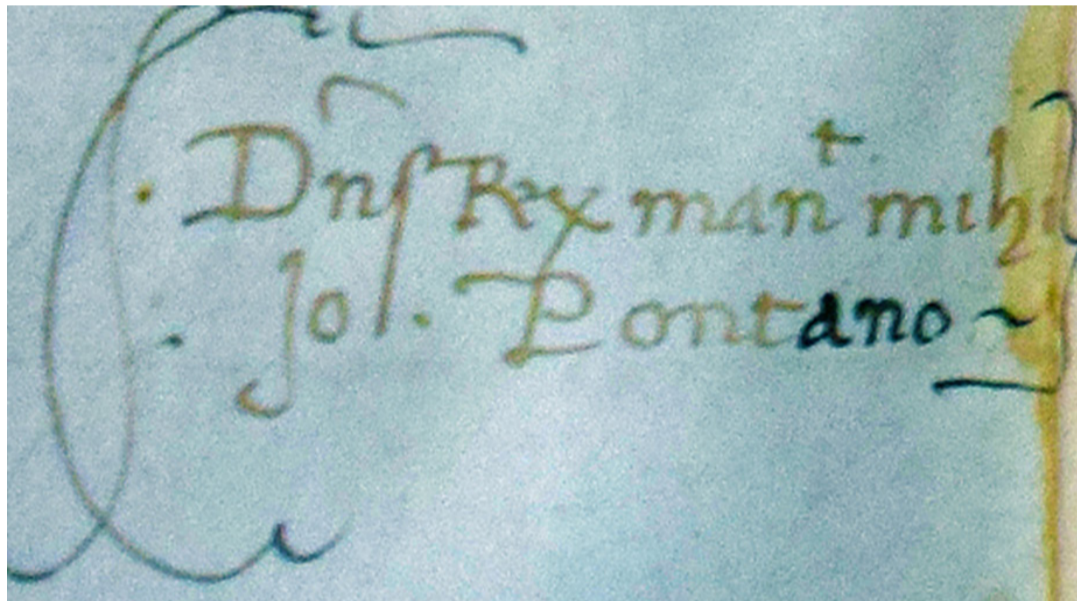 Dnſ Rex man^t mihi
Jo/. Pontano ~